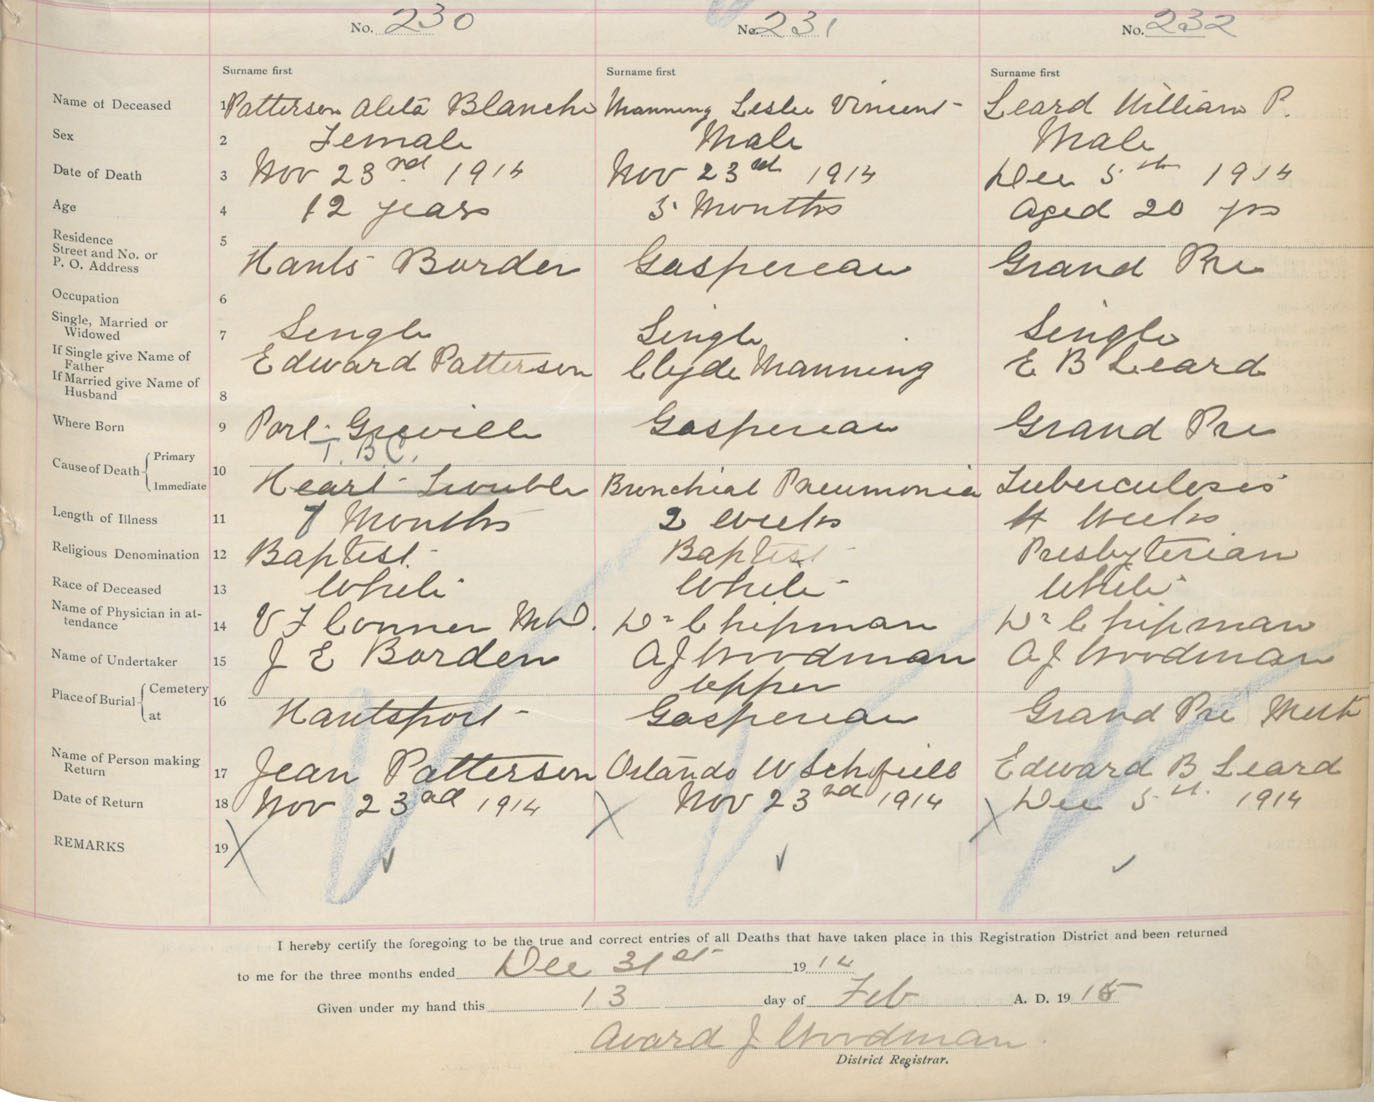 No. 230 No. 231 No. 232
Surname first Surname first Surname first
Name of Deceased 1 Patterson Aleta Blanche Manning Leslie Vincent Leard William P.
Sex 2 Female Male Male
Date of Death 3 Nov 23rd 1914 Nov 23rd 1914 Dec 5th 1914
Age 4 12 years 5 Months aged 20 yrs
Residence Street and No. or P. O. Address 5 Hants Border Gaspereau Grand Pre
Occupation 6
Single, Married or Widowed 7 Single Single Single
If Single give Name of Father Edward Patterson Clyde Manning E B Leard
If Married give Name of Husband 8
Where Born 9 Port Greville Gaspereau Grand Pre
T. B C.
Cause of Death { Primary Immediate 10 Heart Trouble Bronchial Pneumonia Tuberculosis
Length of Illness 11 7 Months 2 weeks 4 weeks
Religious Denomination 12 Baptist Baptist Presbyterian
Race of Deceased 13 White White White
Name of Physician in attendance 14 V F Connor M.D. Dr Chipman Dr Chipman
Name of Undertaker 15 J E Borden A J Woodman A J Woodman
Place of Burial { Cemetery at 16 Hantsport Upper Gaspereau Grand Pre Meth
Name of Person making Return 17 Jean Patterson Orlando W Schofield Edward B Leard
Date of Return 18 Nov 23rd 1914 Nov 23rd 1914 Dec 5th 1914
REMARKS 19
I hereby certify the foregoing to be the true and correct entries of all Deaths that have taken place in this Registration District and been returned
to me for the three months ended Dec 31st 1914
Given under my hand this 13 day of Feb A. D. 1915
Avard J Woodman
District Registrar.